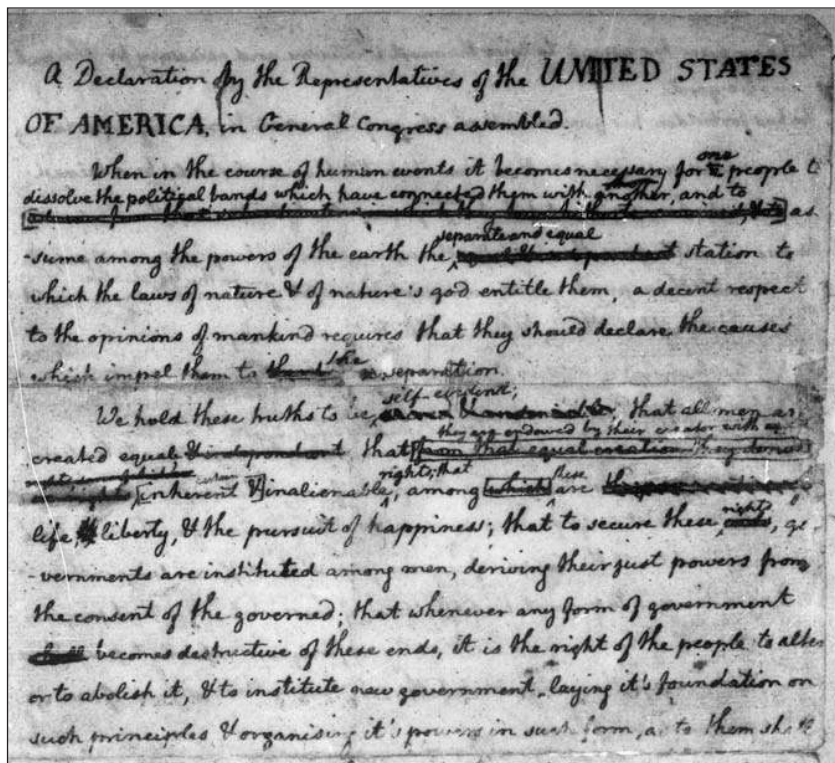 A Declaration by the Representatives of the UNITED STATES
OF AMERICA, in General Congress assembled.
When in the course of human events it becomes necessary for one people t
dissolve the political bands which have connected them with another, and to
as
-sume among the powers of the earth the separate and equal equal & independant station to
which the laws of nature & of nature's god entitle them, a decent respect
to the opinions of mankind requires that they should declare the causes
which impel them to the separation.
We hold these truths to be self evident; sacred & undeniable, that all men ar
they are endowed by their creator with
created equal & independant that from that equal creation they derive
certain
rights, that these
[inherent &] inalienable, among which are
life, liberty, & the pursuit of happiness; that to secure these rights ends, go
-vernments are instituted among men, deriving their just powers from
the consent of the governed; that whenever any form of government
shall becomes destructive of these ends, it is the right of the people to alter
or to abolish it, & to institute new government, laying it's foundation on
such principles & organising it's powers in such form, as to them sh